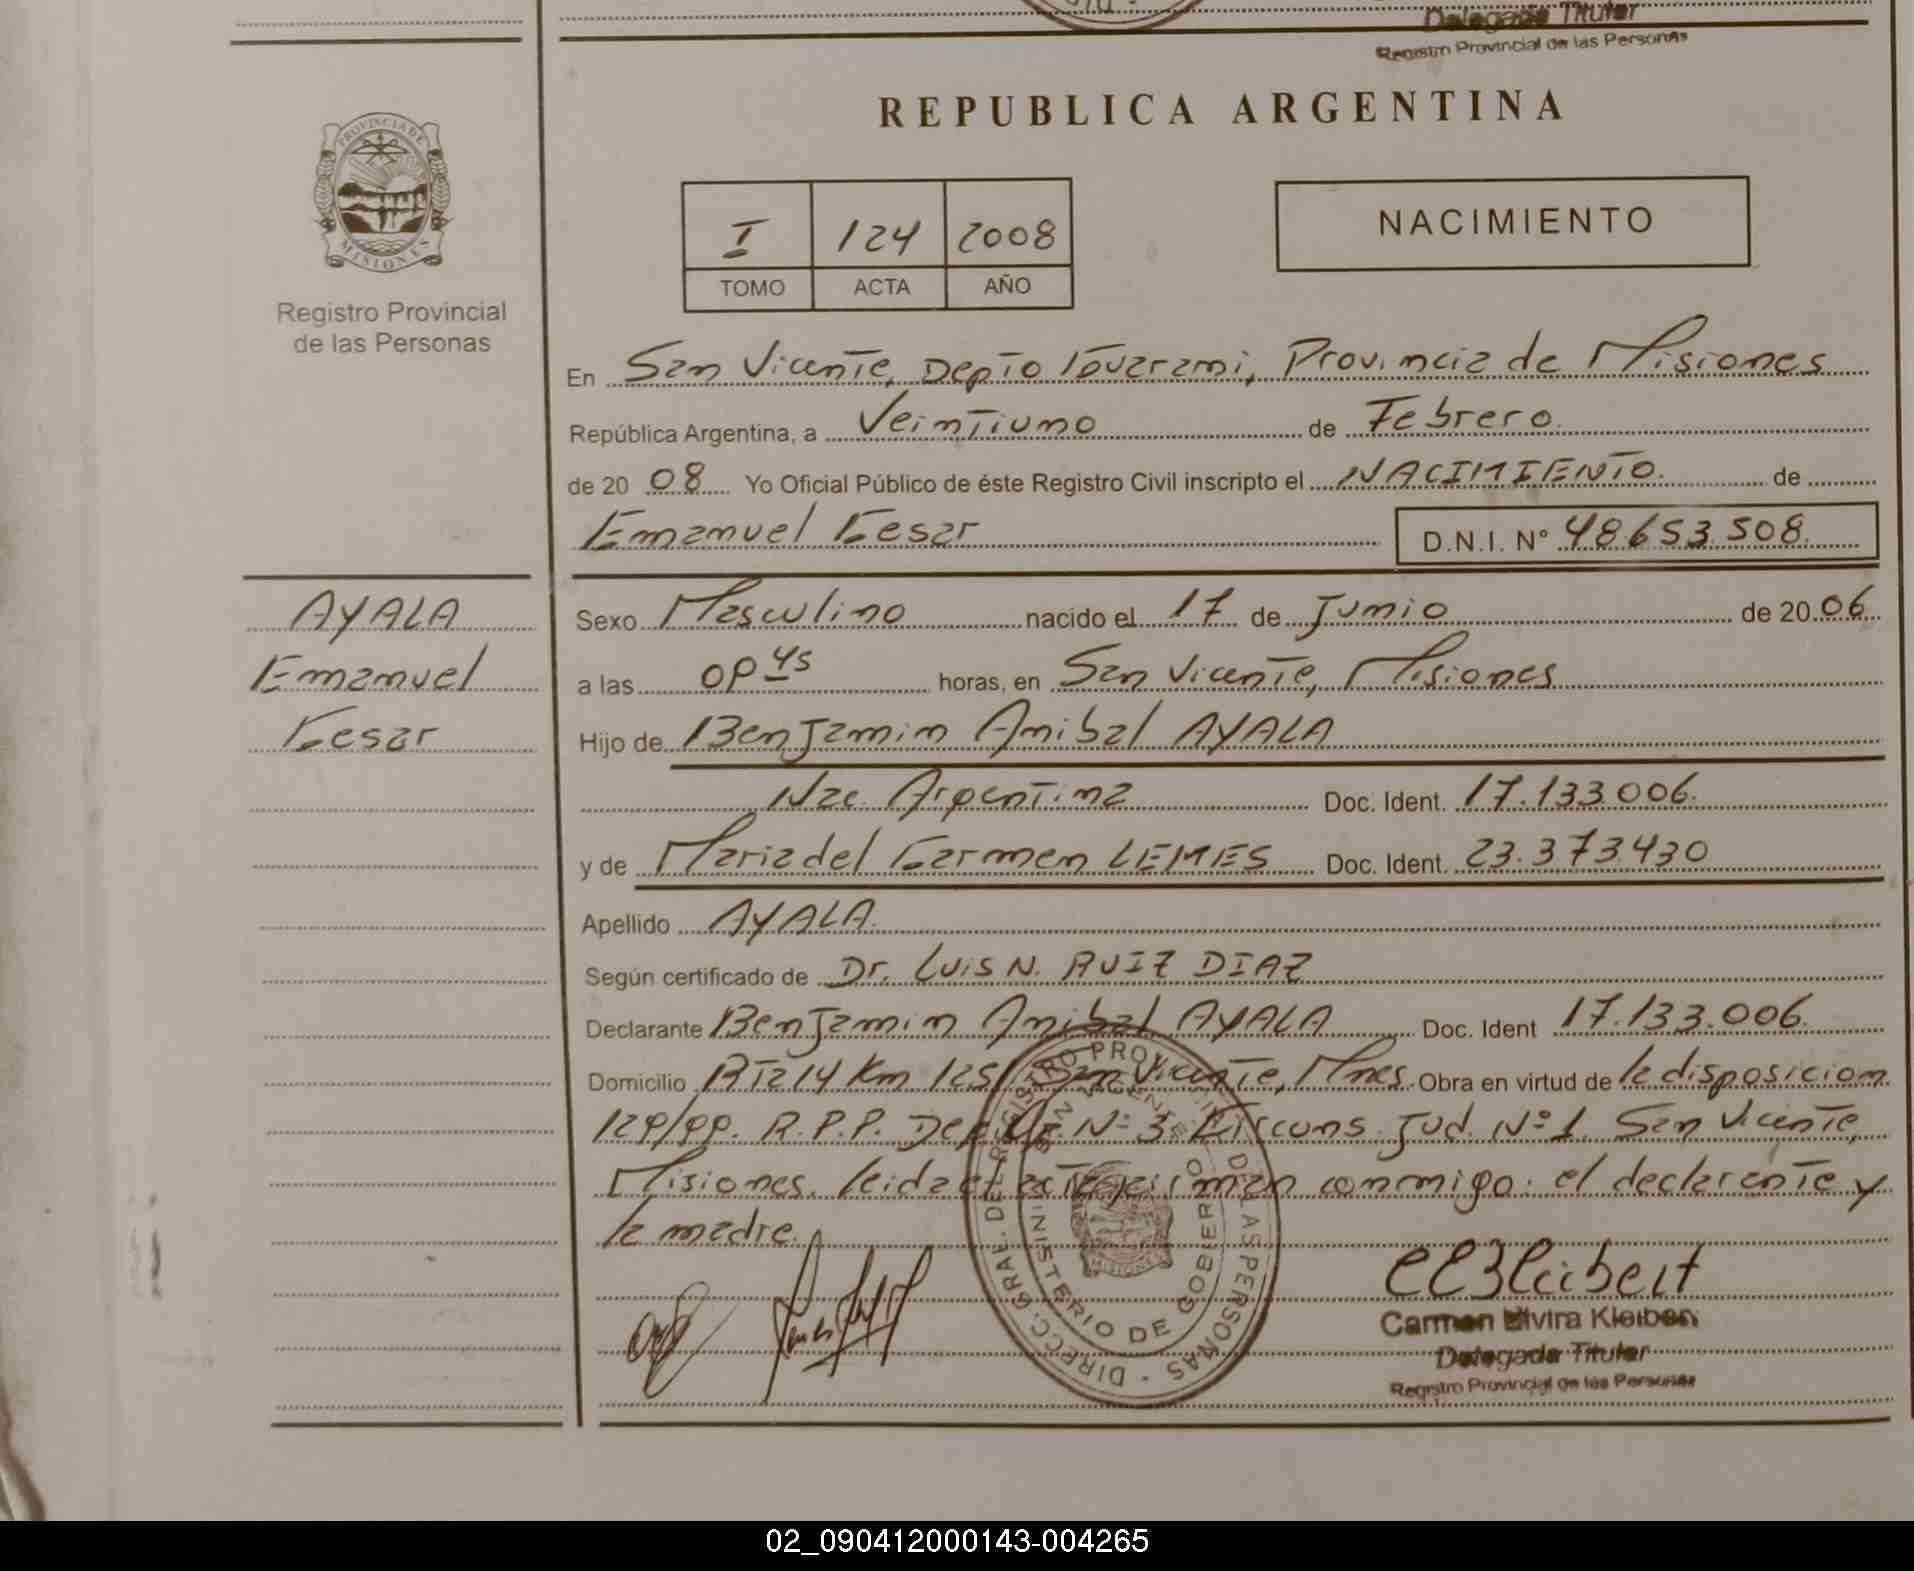 Delegada Titular
Registro Provincial de las Personas
REPUBLICA ARGENTINA
PROVINCIA DE
MISIONES
Registro Provincial
de las Personas
I 124 2008
TOMO ACTA AÑO
NACIMIENTO
En San Vicente, Depto Guarani, Provincia de Misiones
República Argentina, a Veintiuno de Febrero
de 20 08 Yo Oficial Público de éste Registro Civil inscripto el NACIMIENTO. de
Emanuel Cesar D.N.I. N° 48.653.508.
AYALA
Emanuel
Cesar
Sexo Masculino nacido el 17 de Junio de 2006
a las 09 45 horas, en San Vicente, Misiones
Hijo de Benjamin Anibal AYALA
Nac. Argentina Doc. Ident. 17.133.006.
y de Maria del Carmen LEMES Doc. Ident. 23.373.430
Apellido AYALA.
Según certificado de Dr. Luis N. RUIZ DIAZ
Declarante Benjamin Anibal AYALA Doc. Ident 17.133.006.
Domicilio RTA 14 Km 125 San Vicente, Mnes. Obra en virtud de la disposicion
129/99. R.P.P. N° 3 Circuns. Jud. N° 1 San Vicente,
Misiones. leida el acta firman conmigo: el declarante y
la madre.
DIRECC. GRAL. DEL REGISTRO PROVINCIAL DE LAS PERSONAS
SAN VICENTE
MINISTERIO DE GOBIERNO
MISIONES
Carmen Elvira Kleibert
Delegada Titular
Registro Provincial de las Personas
02_090412000143-004265